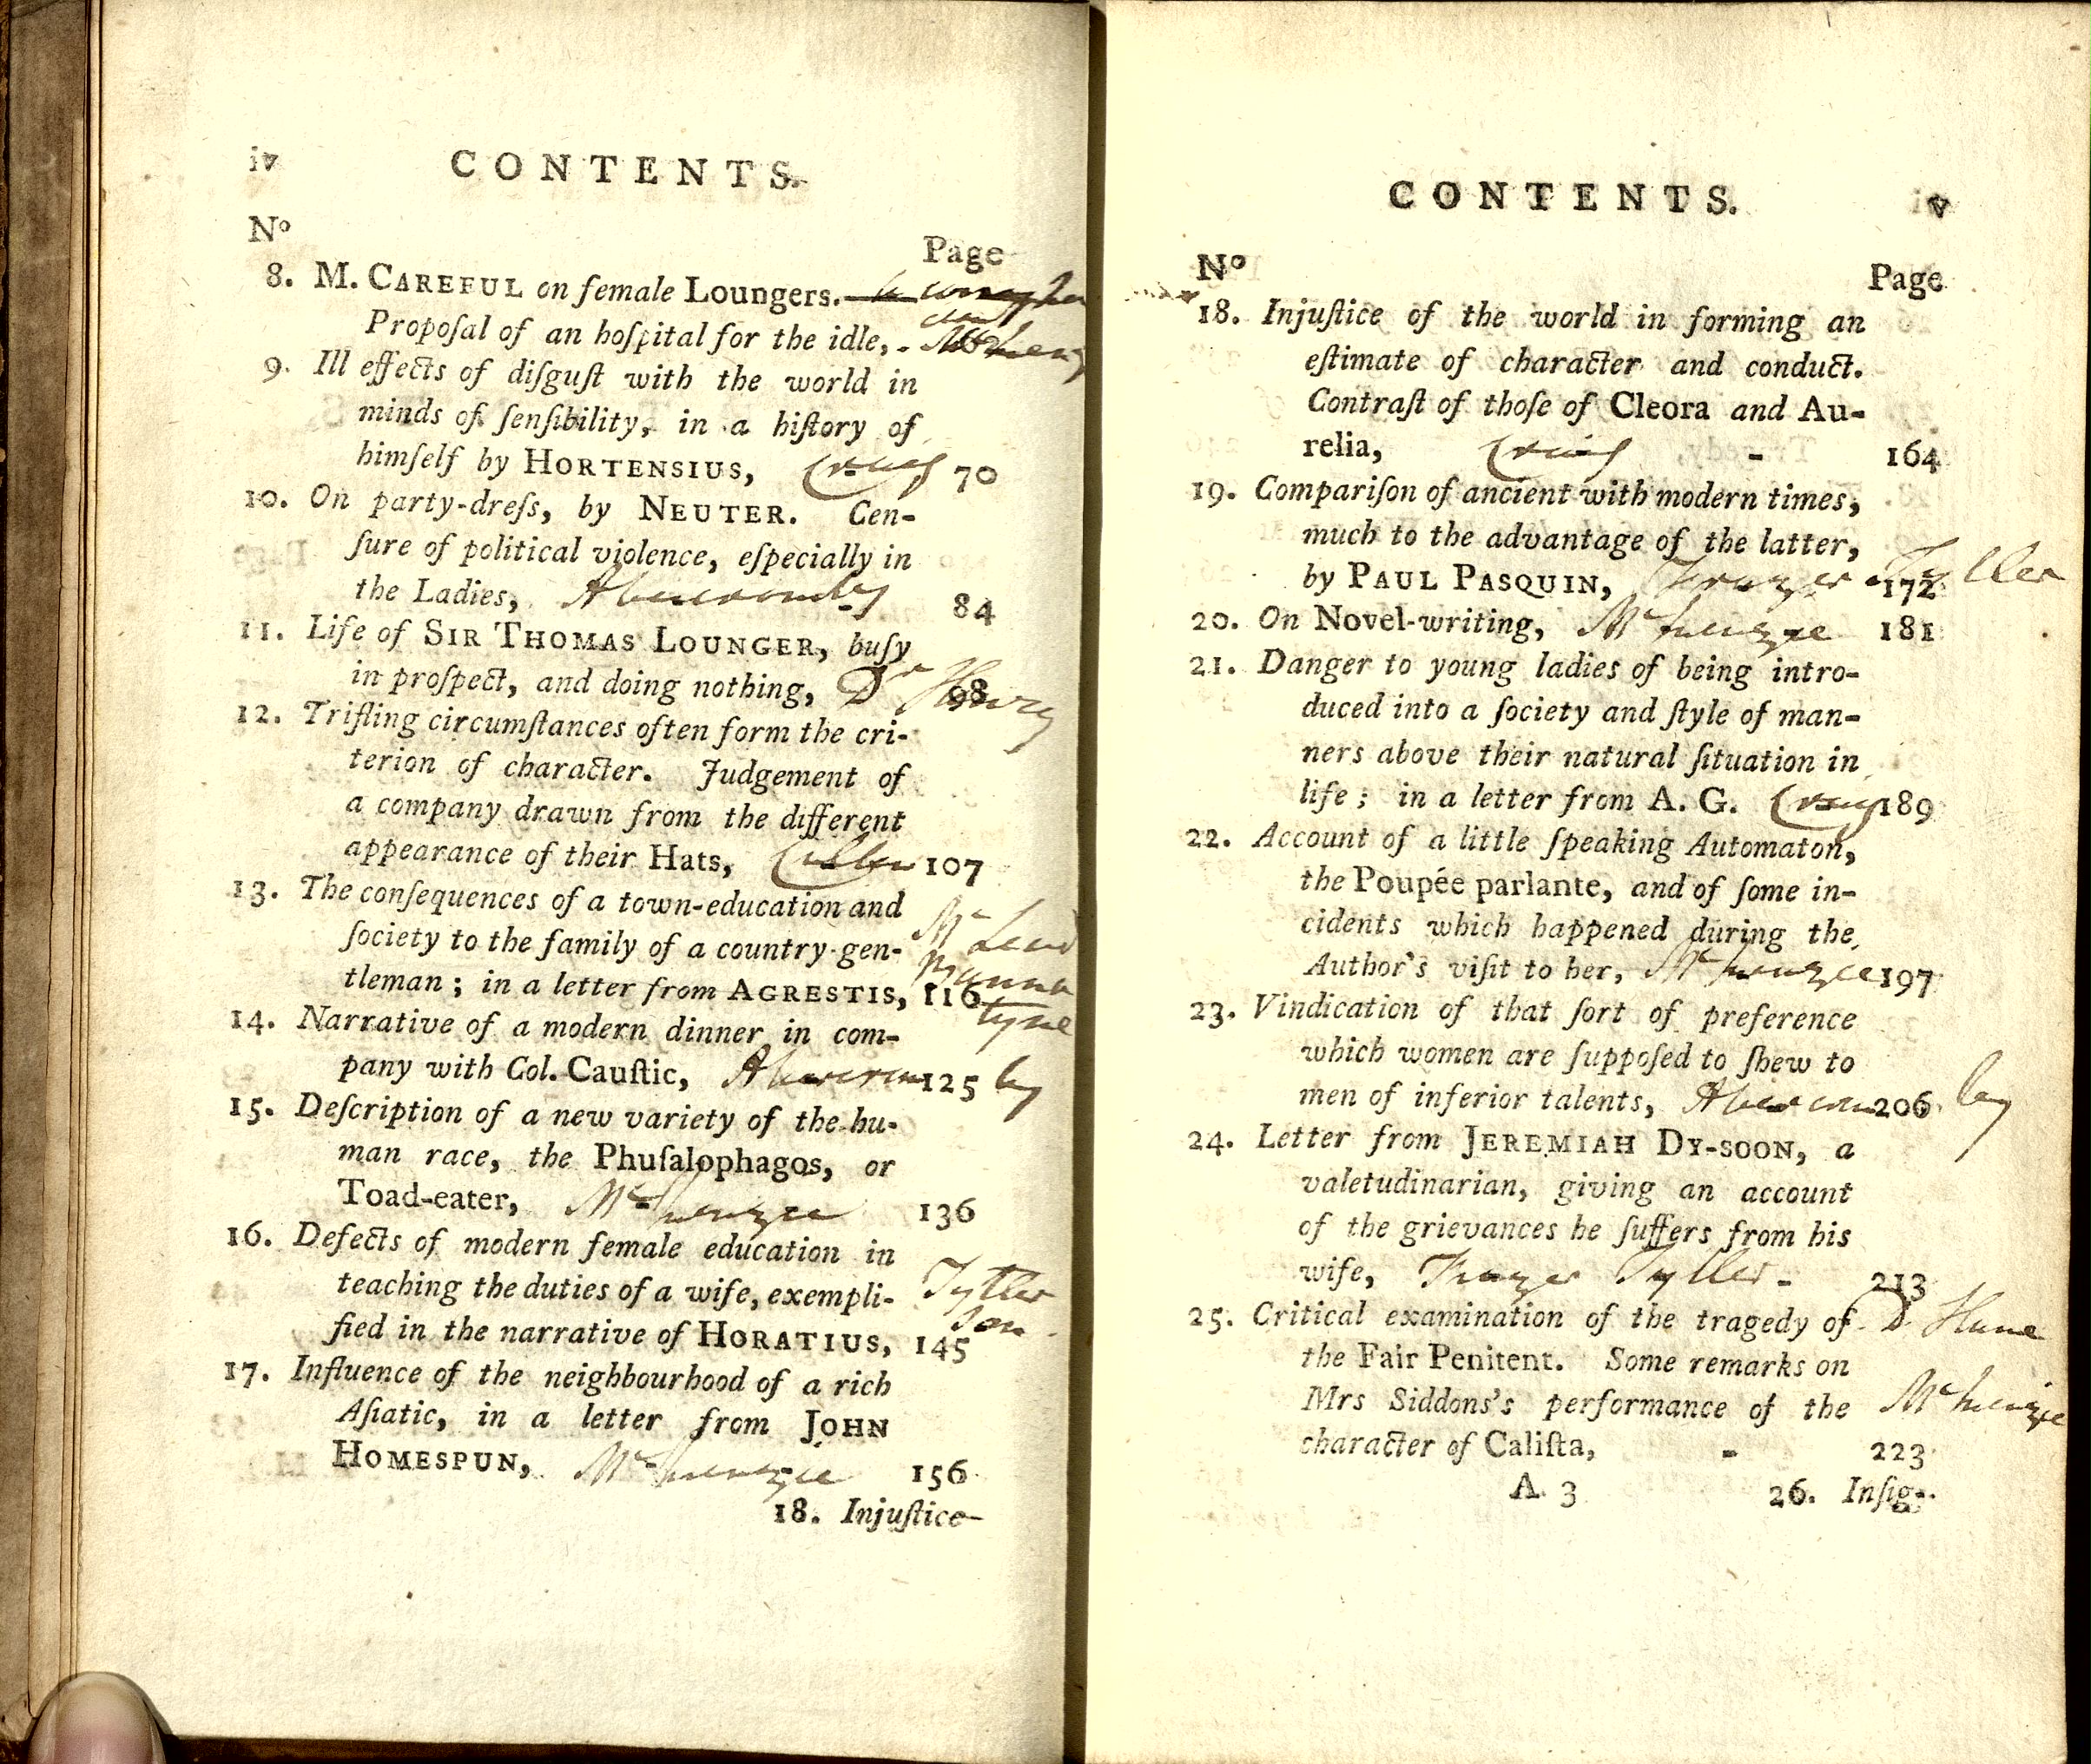 iv CONTENTS.
No Page
8. M. CAREFUL on female Loungers.
Propoſal of an hoſpital for the idle, -
9. Ill effects of diſguſt with the world in
minds of ſenſibility, in a hiſtory of
himſelf by HORTENSIUS, Craig 70
10. On party-dreſs, by NEUTER. Cen-
ſure of political violence, eſpecially in
the Ladies, Abercromby 84
11. Life of SIR THOMAS LOUNGER, buſy
in proſpect, and doing nothing, Dr Henry 98
12. Trifling circumſtances often form the cri-
terion of character. Judgement of
a company drawn from the different
appearance of their Hats, Cullen 107
13. The conſequences of a town-education and
ſociety to the family of a country-gen-
tleman; in a letter from AGRESTIS, 116
Mc Leod
Banna
tyne
14. Narrative of a modern dinner in com-
pany with Col. Cauſtic, Abercrom 125 by
15. Deſcription of a new variety of the hu-
man race, the Phuſalophagos, or
Toad-eater, McKenzie 136
16. Defects of modern female education in
teaching the duties of a wife, exempli- Tytler
fied in the narrative of HORATIUS, 145
17. Influence of the neighbourhood of a rich
Aſiatic, in a letter from JOHN
HOMESPUN, McKenzie 156
18. Injuſtice
CONTENTS. v
No Page
18. Injuſtice of the world in forming an
eſtimate of character and conduct.
Contraſt of thoſe of Cleora and Au-
relia, Craig - 164
19. Compariſon of ancient with modern times,
much to the advantage of the latter,
by PAUL PASQUIN, Frazer Tytler 172
20. On Novel-writing, McKenzie 181
21. Danger to young ladies of being intro-
duced into a ſociety and ſtyle of man-
ners above their natural ſituation in
life; in a letter from A. G. Craig 189
22. Account of a little ſpeaking Automaton,
the Poupée parlante, and of ſome in-
cidents which happened during the
Author's viſit to her, McKenzie 197
23. Vindication of that ſort of preference
which women are ſuppoſed to ſhew to
men of inferior talents, Abercrom 206 by
24. Letter from JEREMIAH DY-SOON, a
valetudinarian, giving an account
of the grievances he ſuffers from his
wife, Frazer Tytler - 213
25. Critical examination of the tragedy of D. Hume
the Fair Penitent. Some remarks on
Mrs Siddons's performance of the McKenzie
character of Caliſta, - 223
A 3 26. Inſig-